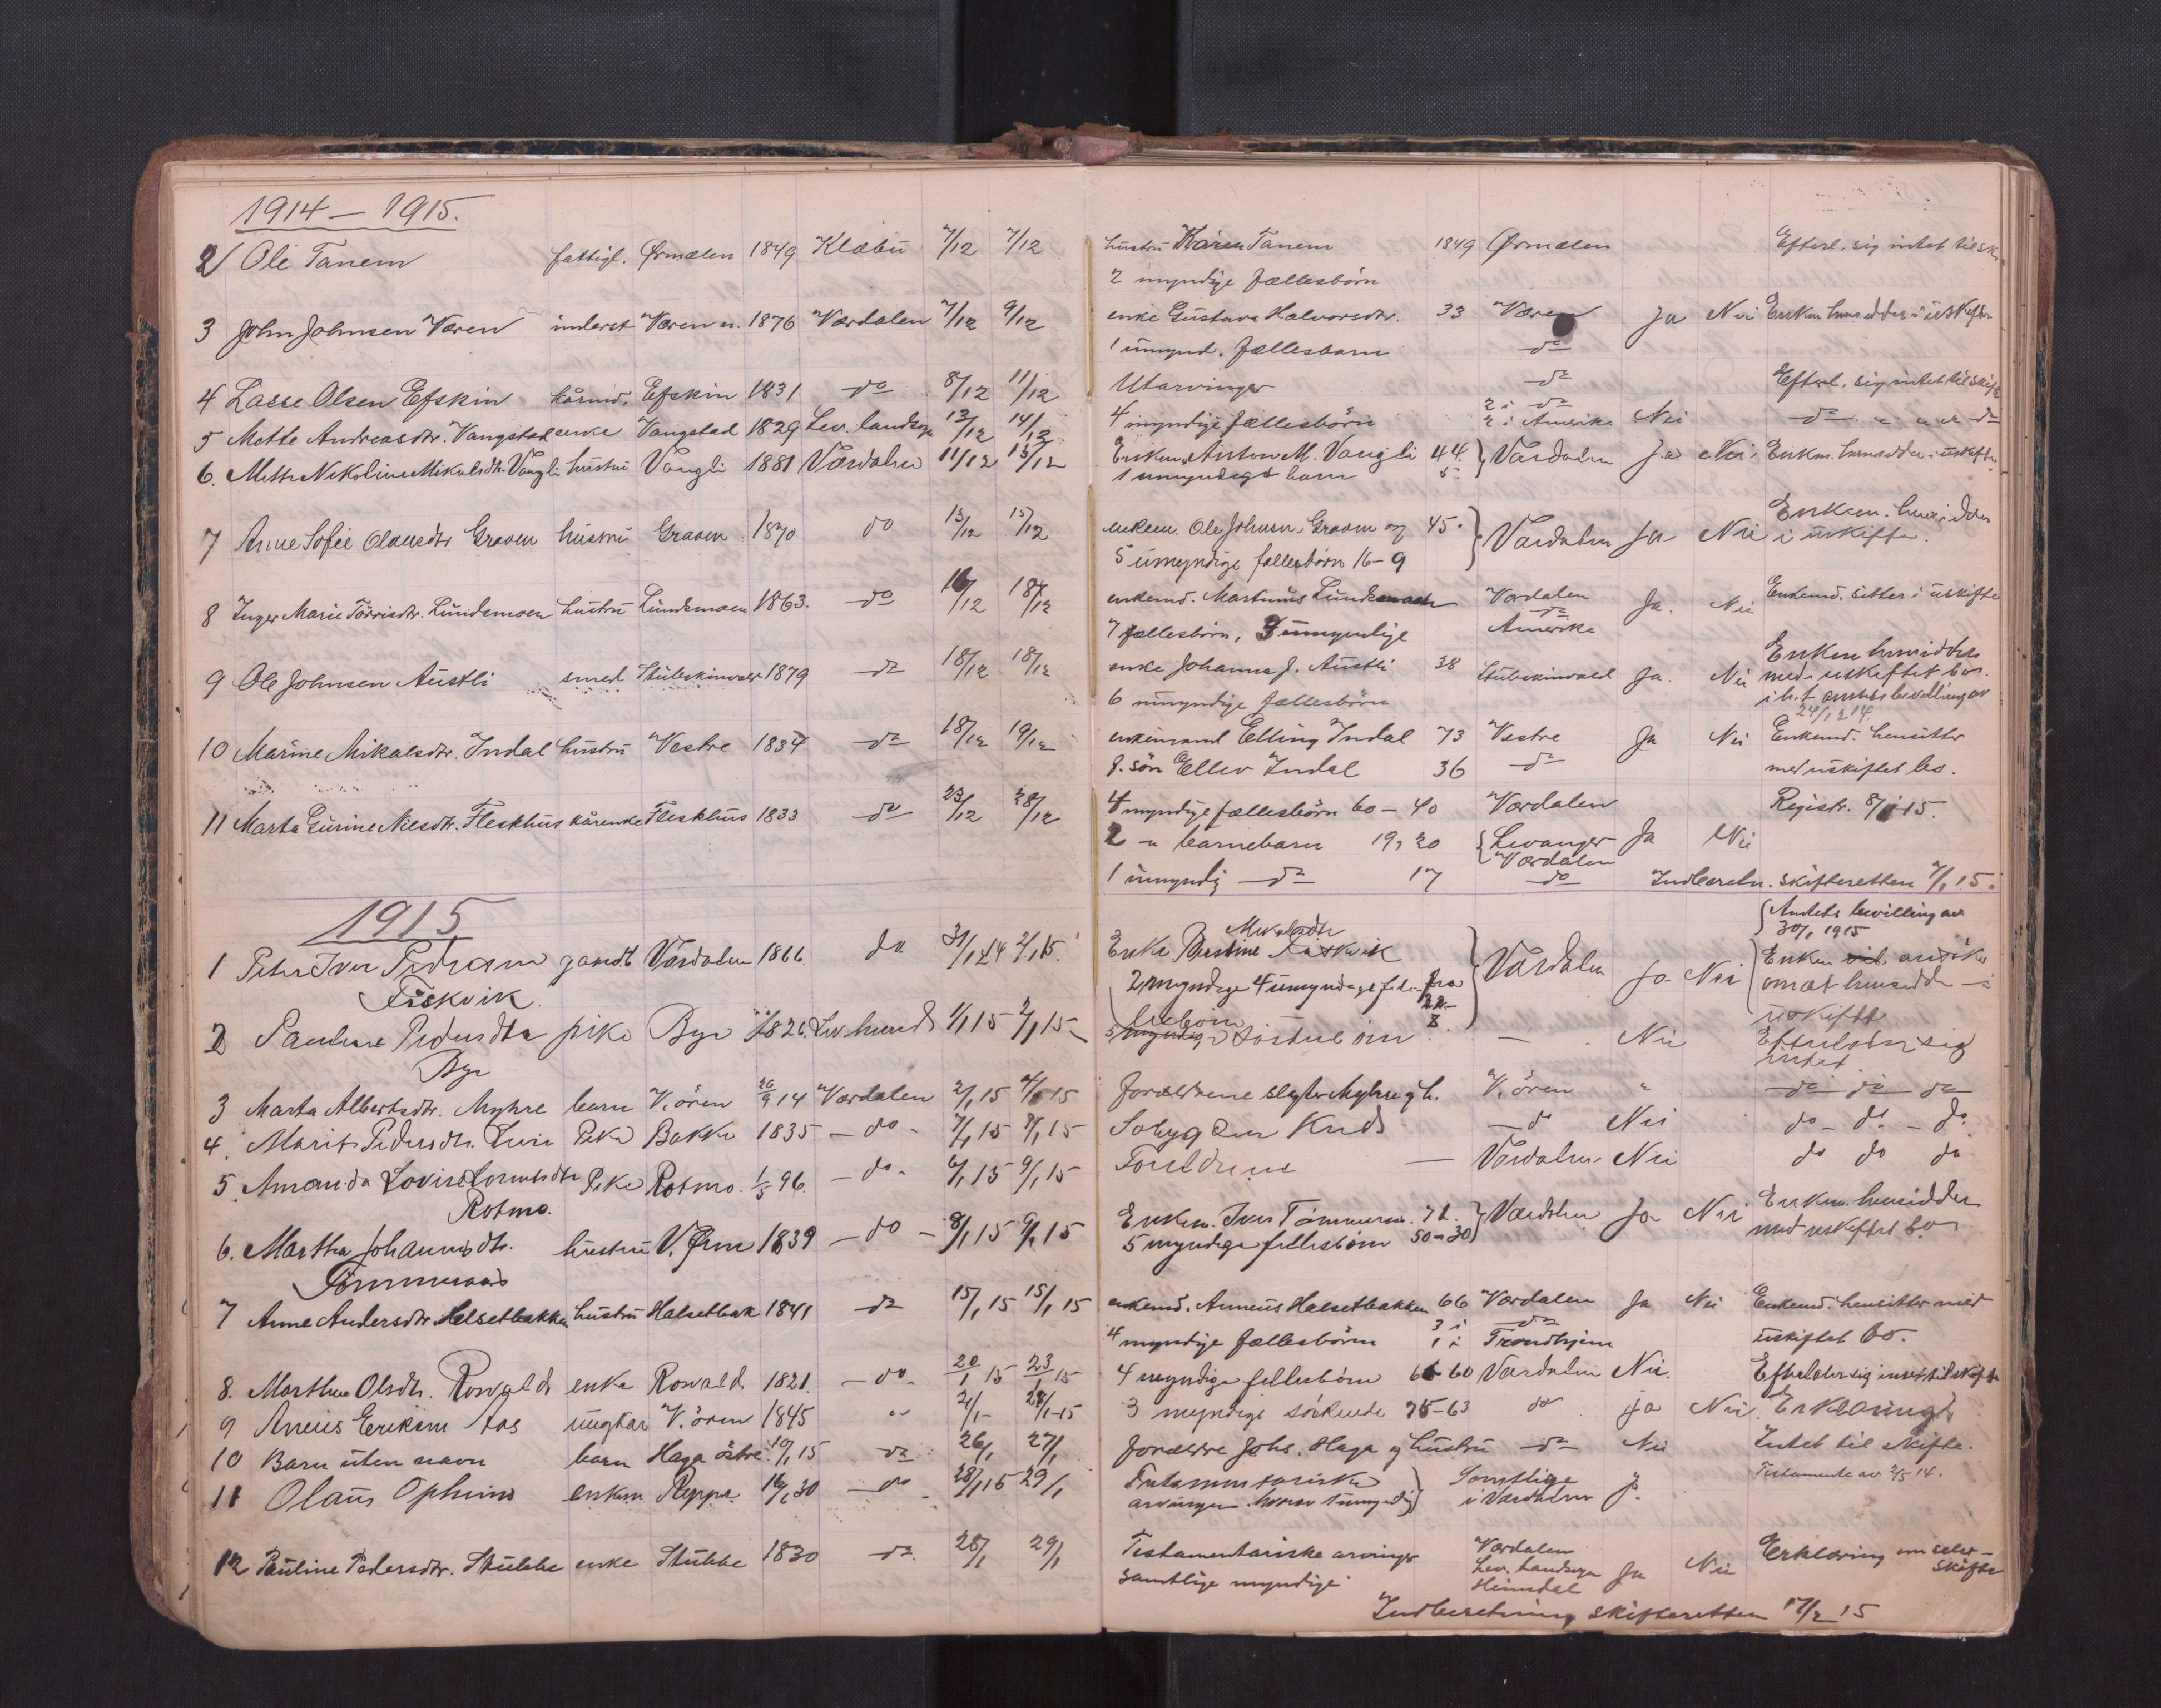 1914 – 1915.
2 Ole Tanem fattigl. Ørmælen 1849 Klæbu 7/12 7/12 hustru Karen Tanem 1849 Ørmælen Efterl. sig intet til sk.
2 myndige fællesbörn
3 John Johnsen Væren inderst Væren n. 1876 Værdalen 7/12 9/12 enke Gustava Halvorsdtr. 33 Væren Ja Nei Enken hensidder i uskiftet
1 umynd. fællesbarn do
4 Lasse Olsen Efskin kårmd. Efskin 1831 do 8/12 11/12 Utarvinger do Efterl. sig intet til skifte
5 Mette Andreasdtr. Vangstad enke Vangstad 1829 Lev. landsogn 13/12 14/12 4 myndige fællesbörn 2 i do 2 i Amerika Nei do " " " do
6. Mette Nikoline Mikalsdtr. Vangli hustru Vangli 1881 Værdalen 11/12 15/12 Enkem. Anton M. Vangli 44. Værdalen Ja Nei Enkem. hensidder i uskifte
1 umyndigt barn 5.
7 Anne Sofie Olausdtr Graven hustru Graven 1870 do 13/12 15/12 enkem. Ole Johnsen Graven og 45. Værdalen Ja Nei Enkem. hensidder
5 umyndige fællesbörn 16–9 i uskifte.
8 Inger Marie Törrisdtr. Lundemoen hustru Lundemoen 1863. do 16/12 18/12 enkemd. Martinus Lundemoen Værdalen Ja. Nei Enkemd. sitter i uskifte
7 fællesbörn, 3 umyndige do Amerika
9 Ole Johnsen Austli smed Stubskinvald 1879 do 18/12 18/12 enke Johanna J. Austli 38 Stubskinvald Ja. Nei Enken hensidder
med uskiftet bo.
6 umyndige fællesbörn i h. t. amtets bevilling av
24/12 14.
10 Marine Mikalsdtr. Indal hustru Vestre 1834 do 18/12 19/12 enkemand Elling Indal 73 Vestre Ja Nei Enkemd. hensitter
8. sön Ellev Indal 36 do med uskiftet bo.
11 Marta Gurine Nilsdtr. Fleskhus kårenke Fleskhus 1833 do 23/12 28/12 4 myndige fællesbörn 60–40 Værdalen Registr. 8/1-15.
2 " barnebarn 19, 20 Levanger Værdalen Ja Nei
1 umyndig do 17 do Indberetn. skifteretten 7/1 15.
1915
Amtets bevilling av
30/1 1915
1 Peter Iver Pedersen gaardb. Værdalen 1866. do 31/12 14 2/1 15. Enke Mikalsdtr Fiskvik Værdalen Ja Nei Enken ansöke
Fiskvik 2 myndige 4 umyndige fra 22– 8 om at hensidde i
uskifte
2 Pauline Pedersdtr pike Bye 1826 Lev. herred 1/1 15 2/1 15 3 myndige söskebörn – Nei Efterlater sig
Bye intet
3 Marta Albertsdtr. Myhre barn V. ören 20/9 14 Værdalen 2/1 15 4/1 15 Forældrene slagter Myhre og h. V. ören " do do do
4. Marit Pedersdtr. Pike Bakke 1835 – do – 7/1 15 8/1 15 – do Nei do – do – do
5. Amanda Lovise Lorentsdtr Pike Rotmo. 1/5 96. – do – 6/1 15 9/1 15 Foreldrene – Værdalen Nei do do do
Rotmo.
6. Martha Johannisdtr. hustru V. Øren 1839 – do – 8/1 15 9/1 15 Enkem. Iver Tömmeraas. 71. Værdalen Ja Nei Enkem. hensidder
Tömmeraas 5 myndige fællesbörn 50–30 med uskiftet bo
7 Anne Andersdtr. Halsetbakken hustru Halsetbak 1841 do 15/1 15 15/1 15 enkemd. Anneus Halsetbakken 66 Værdalen Ja Nei Enkemd. hensitter med
4 myndige fællesbörn 3 i do 1 i Trondhjem uskiftet bo.
8. Marthe Olsdtr. Rosvald enke Rosvald 1821. – do – 20/1 15 23/1 15 4 myndige fællesbörn 66–60 Værdalen Nei. Efterlater sig intet til skifte
9 Aneus Eriksen Aas ungkar V. ören 1845 " 21/1 – 28/1-15 3 myndige söskende 75–63 do ja Nei Erklæring
10 Barn uten navn barn Haga östre 10/1 15 do 26/1 27/1 forældre Johs. Haga og hustru do Nei Intet til skifte.
11 Olaus Ophims enkem Reppe. 16/6 30 – do – 28/1 15 29/1 Testamentariske Samtlige Testamente av 2/5 14.
arvinger hvorav 1 umyndig i Værdalen J.
12 Pauline Pedersdtr. Stubbe enke Stubbe 1830 do 28/1 29/1 Testamentariske arvinger Værdalen Lev. landsogn Heimdal Ja Nei Erklæring om selv-
samtlige myndige skifte
Indberetning skifteretten 17/2 15